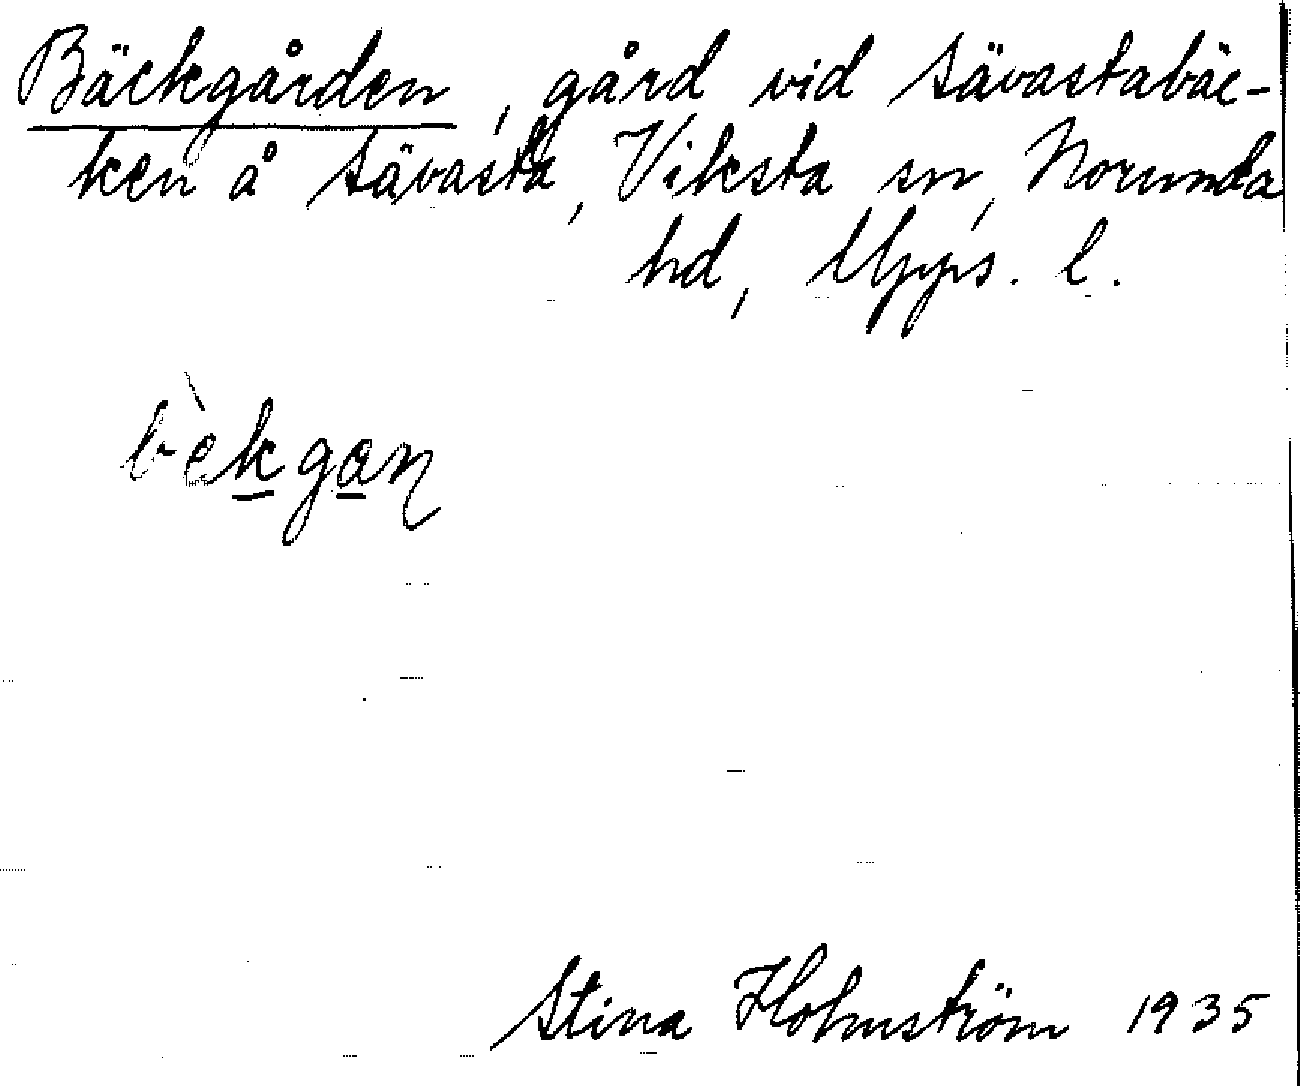 Bäckgården, gård vid Sävastabäc-
ken å Sävasta, Viksta sn, Norunda
hd, Upps. l.
bèkgaɳ
Stina Holmström 1935